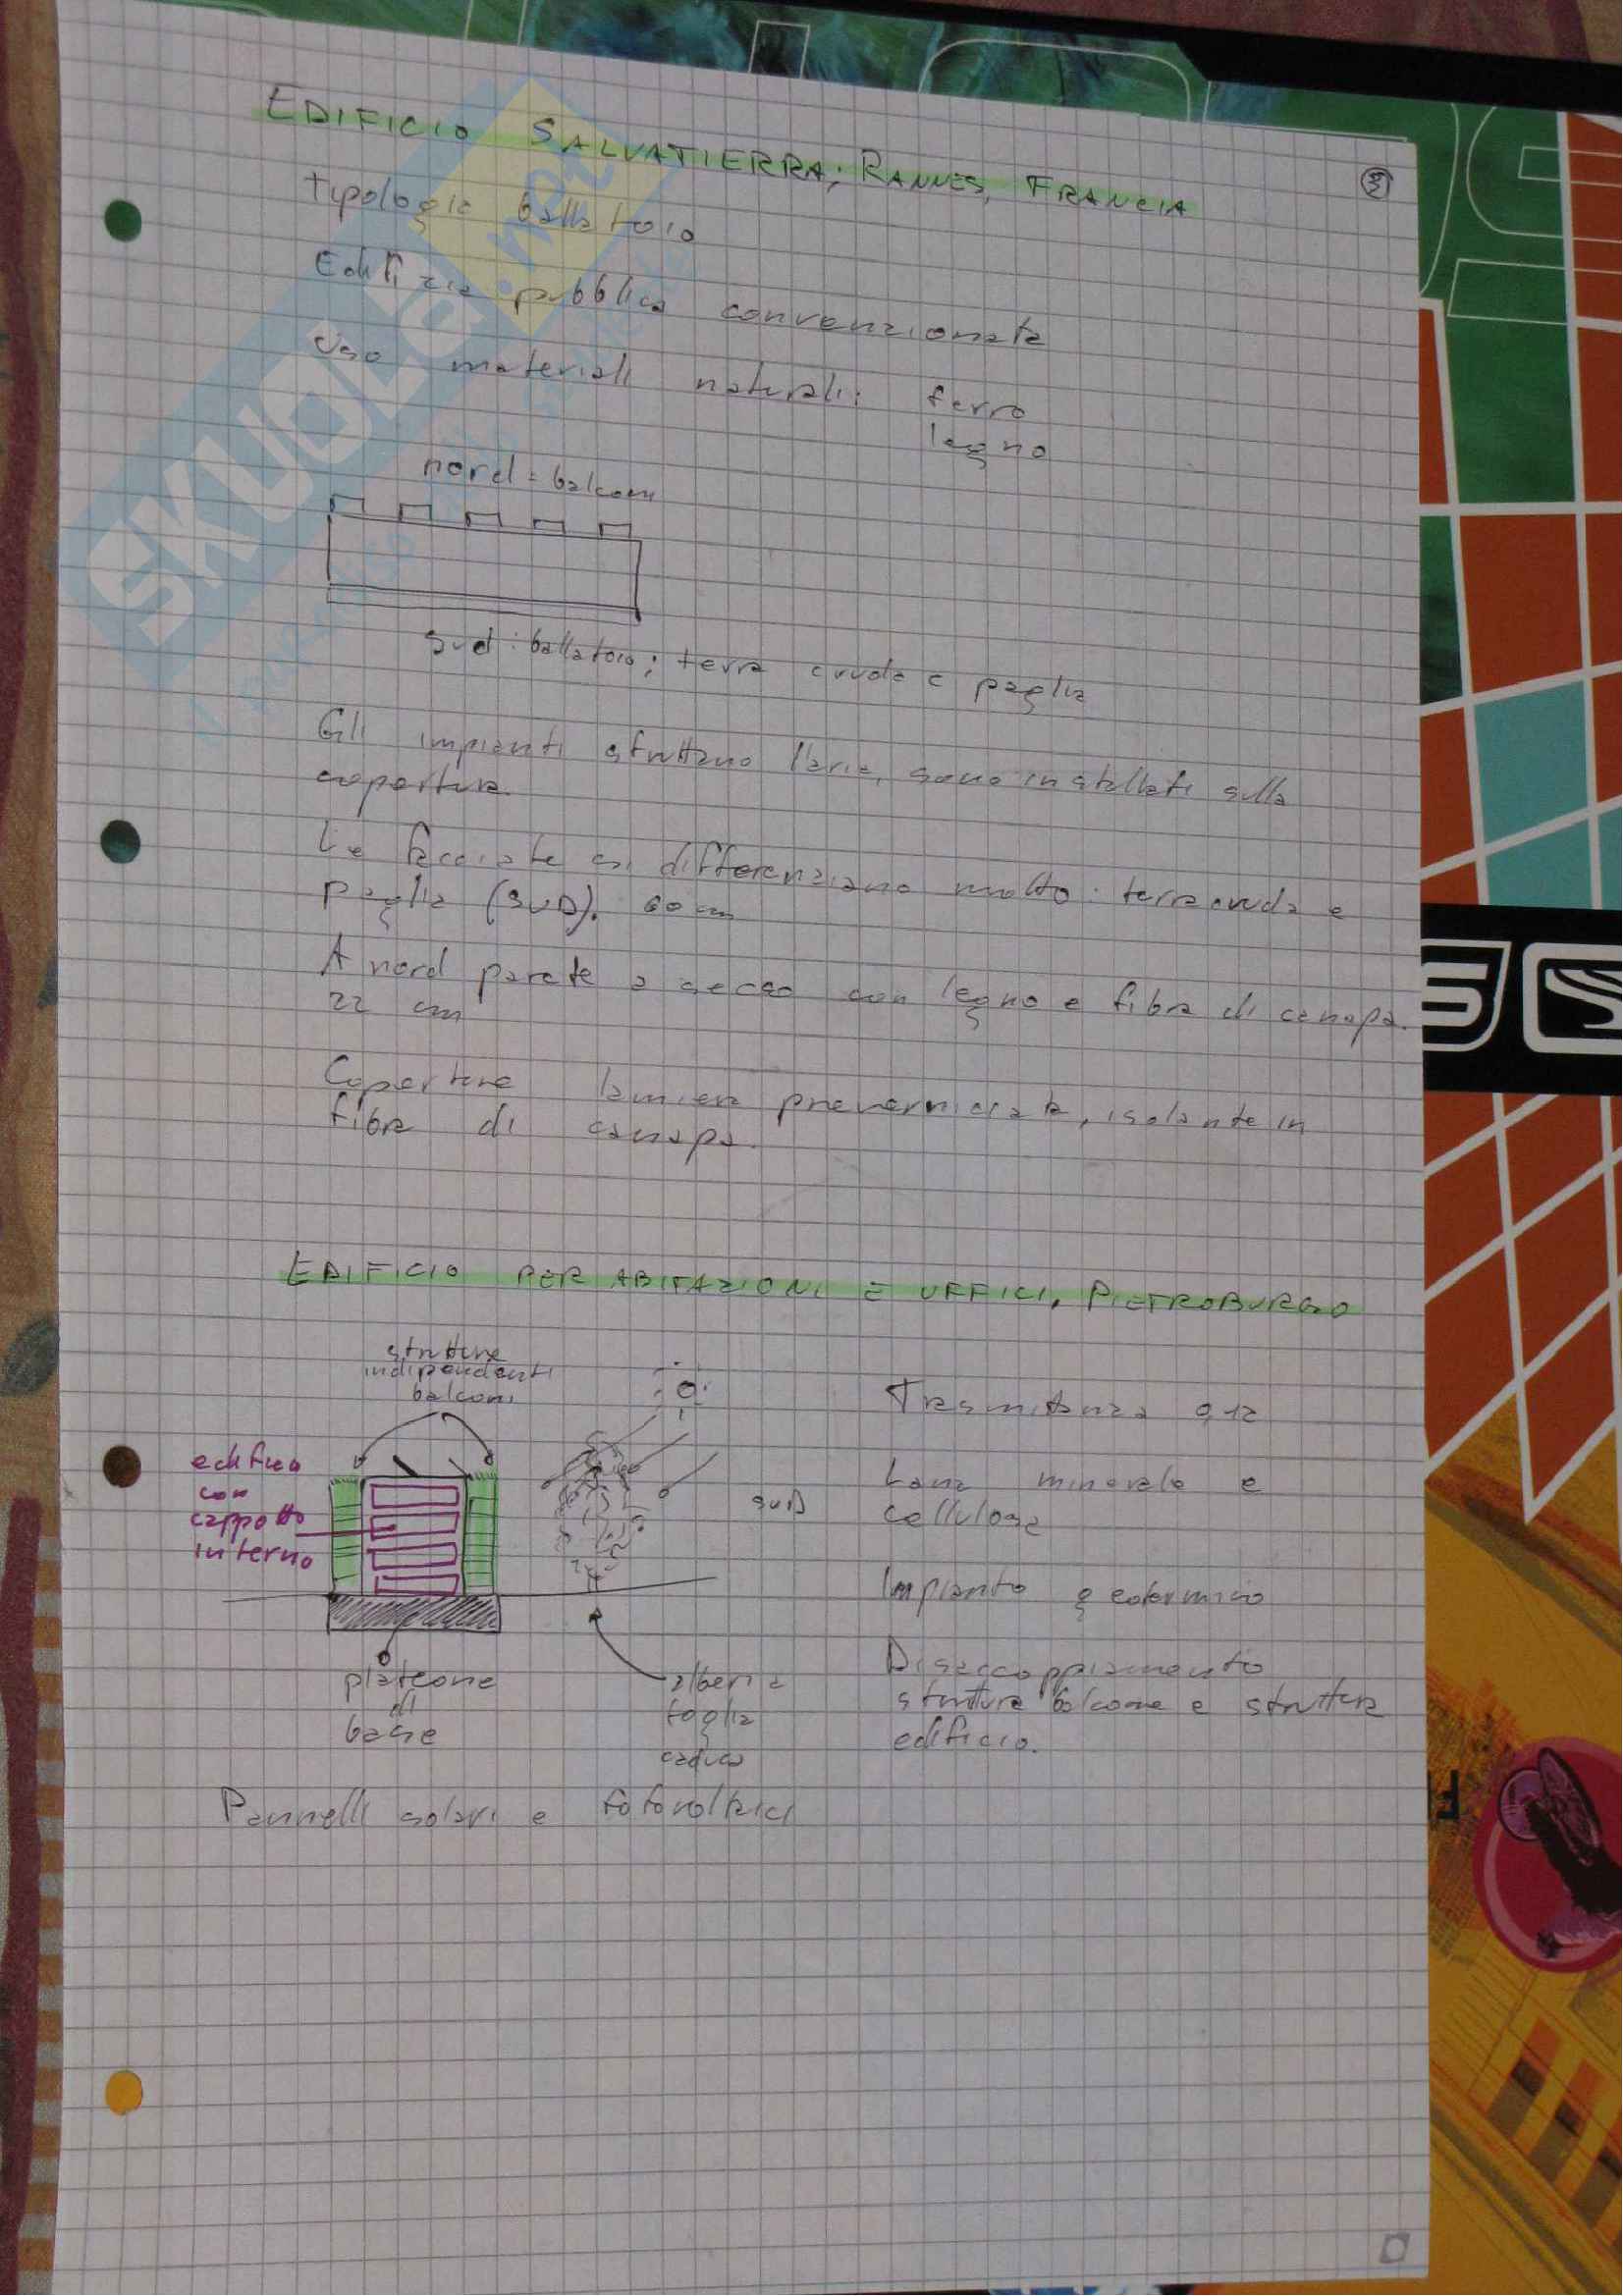 EDIFICIO SALVATIERRA; RANNES, FRANCIA
3
Tipologia ballatoio
Edilizia pubblica convenzionata
Uso materiali naturali: ferro
legno
nord = balconi
sud: ballatoio; terra cruda e paglia
Gli impianti sfruttano l'aria, sono installati sulla
copertura.
Le facciate si differenziano molto: terra cruda e
paglia (SUD). 60 cm
A nord parete a secco con legno e fibra di canapa.
22 cm
Coperture lamiera preverniciata, isolante in
fibra di canapa.
EDIFICIO PER ABITAZIONI E UFFICI, PIETROBURGO
strutture
indipendenti
balconi
Trasmittanza 0,12
edificio
con
cappotto
interno
SUD
Lana minerale e
cellulosa
Impianto geotermico
plateone
di
base
alberi a
foglia
caduca
Disaccoppiamento
struttura balcone e struttura
edificio.
Pannelli solari e fotovoltaici
SKUOLA.net